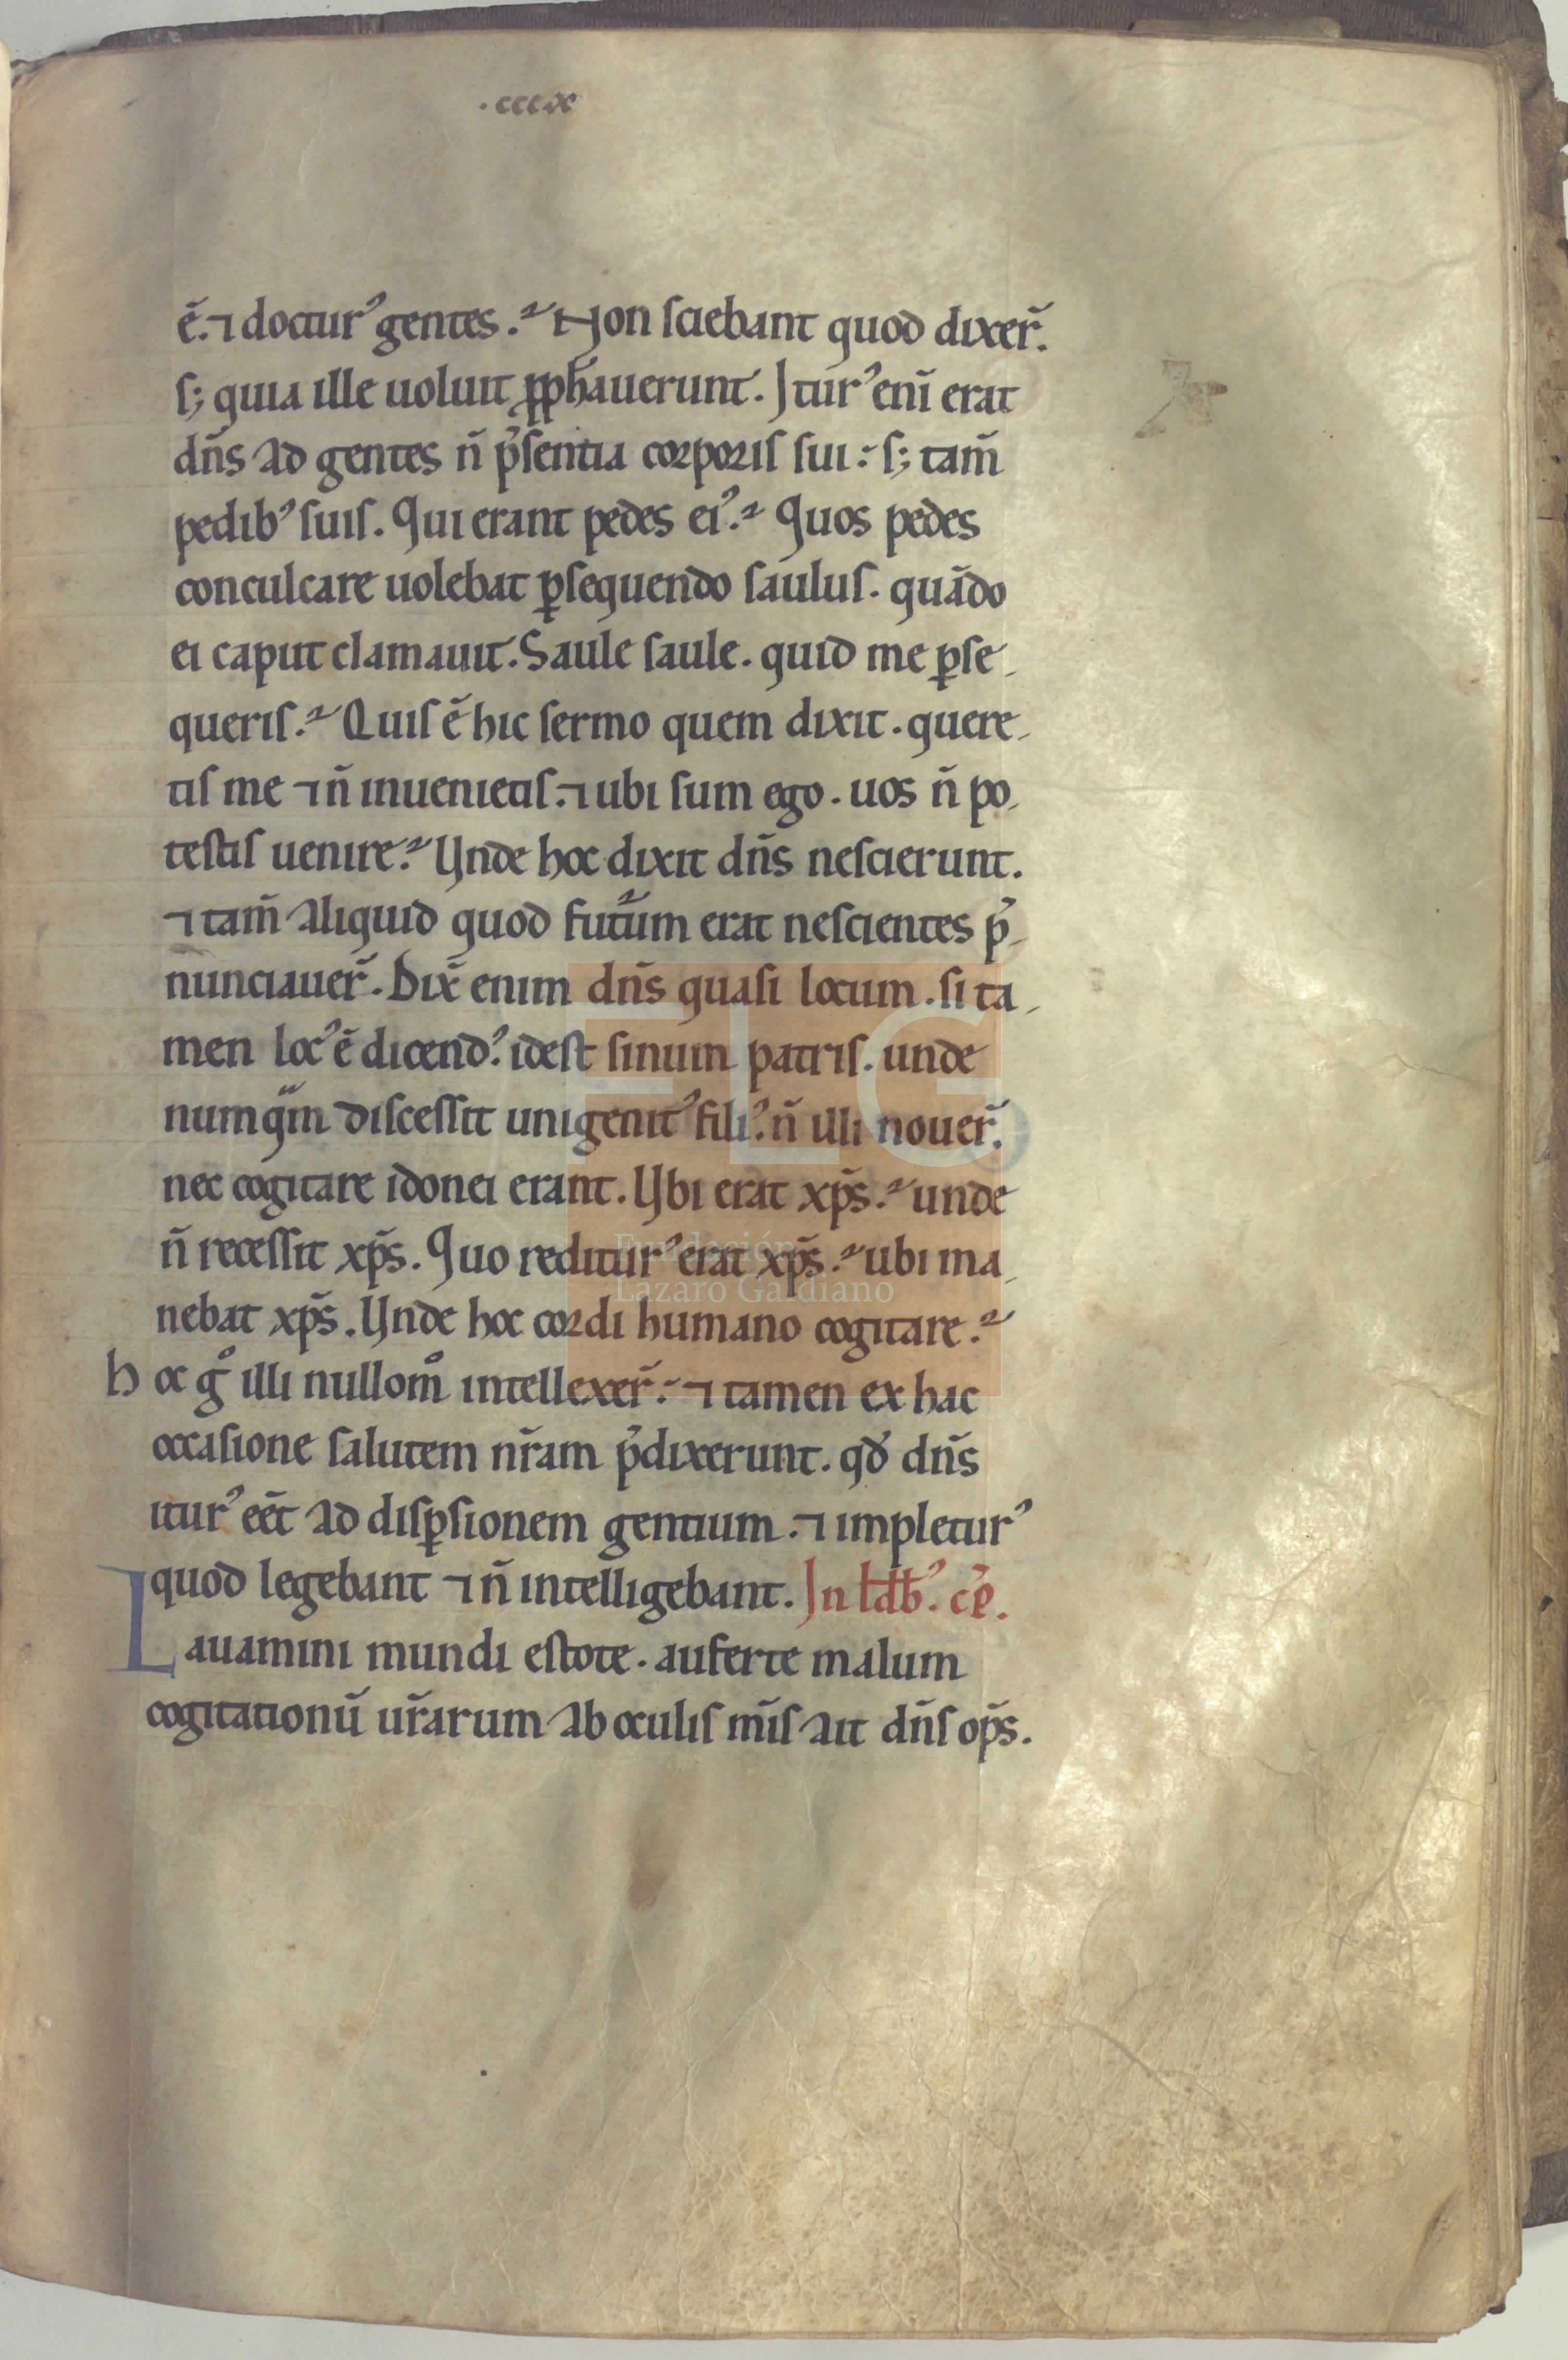 .cccix
ē. ⁊ doctur᾽ gentes. Non sciebant quod dixer̄.
s; quia ille uoluit ꝓph̄auerunt. Itur᾽ enī erat
dn̄s ad gentes n̄ p̄sentia corporis sui: s; tam̄
pedib᾽ suis. Qui erant pedes ei᾽? Quos pedes
conculcare uolebat ꝑsequendo saulus. quādo
ei caput clamauit. Saule saule. quid me ꝑse-
queris? Quis ē hic sermo quem dixit. quere-
tis me ⁊ n̄ inuenietis. ⁊ ubi sum ego. uos n̄ po-
testis uenire? Vnde hoc dixit dn̄s nescierunt.
⁊ tam̄ aliquid quod futum erat nescientes p̄-
nunciauer̄. Dix̄ enim dn̄s quasi locum. si ta-
men loc᾽ ē dicend᾽. idest sinum patris. unde
numqm discessit unigenit᾽ fili᾽. n̄ illi nouer̄.
nec cogitare idonei erant. Vbi erat xp̄s? unde
n̄ recessit xp̄s. Quo reditur᾽ erat xp̄s? ubi ma-
nebat xp̄s. Vnde hoc cordi humano cogitare?
hoc gͦ illi nullomͦ intellexer̄: ⁊ tamen ex hac
occasione salutem nr̄am p̄dixerunt. qđ dn̄s
itur᾽ eēt ad disꝑsionem gentium. ⁊ impletur᾽
quod legebant ⁊ n̄ intelligebant. In ld̄b᾽. cp̄.
Lauamini mundi estote. auferte malum
cogitationū ur̄arum ab oculis m̄is ait dn̄s op̄s.
FLG
Fundación
Lázaro Galdiano